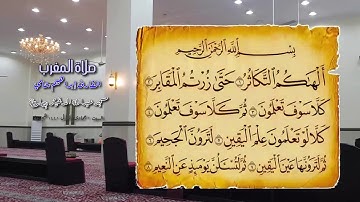 صلاة المغرب
بِسْمِ اللَّهِ الرَّحْمَٰنِ الرَّحِيمِ
أَلْهَاكُمُ التَّكَاثُرُ ۝١ حَتَّىٰ زُرْتُمُ الْمَقَابِرَ ۝٢
كَلَّا سَوْفَ تَعْلَمُونَ ۝٣ ثُمَّ كَلَّا سَوْفَ تَعْلَمُونَ ۝٤
كَلَّا لَوْ تَعْلَمُونَ عِلْمَ الْيَقِينِ ۝٥ لَتَرَوُنَّ الْجَحِيمَ ۝٦
ثُمَّ لَتَرَوُنَّهَا عَيْنَ الْيَقِينِ ۝٧ ثُمَّ لَتُسْأَلُنَّ يَوْمَئِذٍ عَنِ النَّعِيمِ ۝٨